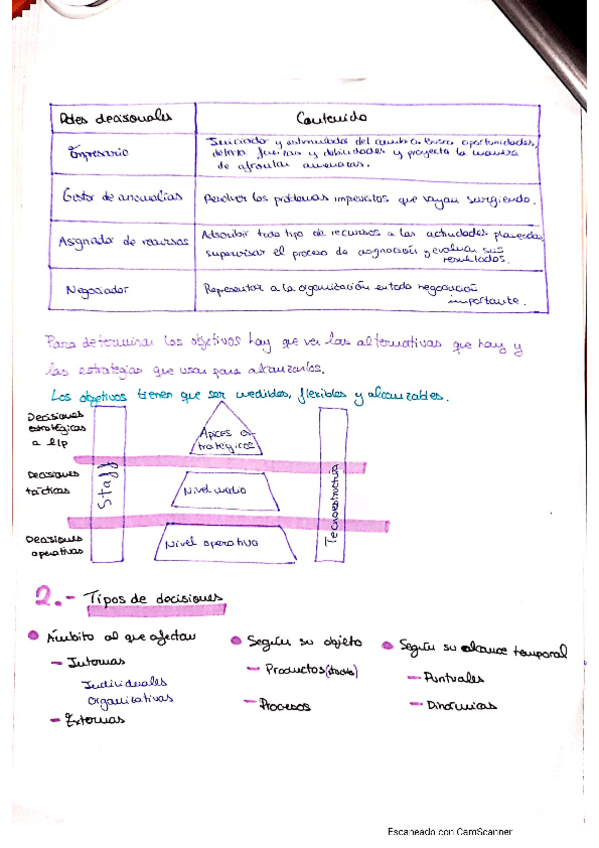 Roles decisionales
Contenido
Empresario
Iniciador y estimulador del cambio. Busca oportunidades,
detecta fuerzas y debilidades y proyecta la manera
de afrontar amenazas.
Gestor de anomalías
Resolver los problemas imprevistos que vayan surgiendo.
Asignador de recursos
Adscribir todo tipo de recursos a las actividades planeadas,
supervisar el proceso de asignación y evaluar sus
resultados.
Negociador
Representar a la organización en toda negociación
importante.
Para determinar los objetivos hay que ver las alternativas que hay y
las estrategias que usar para alcanzarlos.
Los objetivos tienen que ser medibles, flexibles y alcanzables.
Decisiones
estratégicas
a l/p
Staff
Ápices es-
tratégicos
Tecnoestructura
Decisiones
tácticas
Nivel medio
Decisiones
operativas
Nivel operativo
2.- Tipos de decisiones
Ámbito al que afectan
- Internas
Individuales
Organizativas
- Externas
Según su objeto
- Productos
- Procesos
Según su alcance temporal
- Puntuales
- Dinámicas
Escaneado con CamScanner